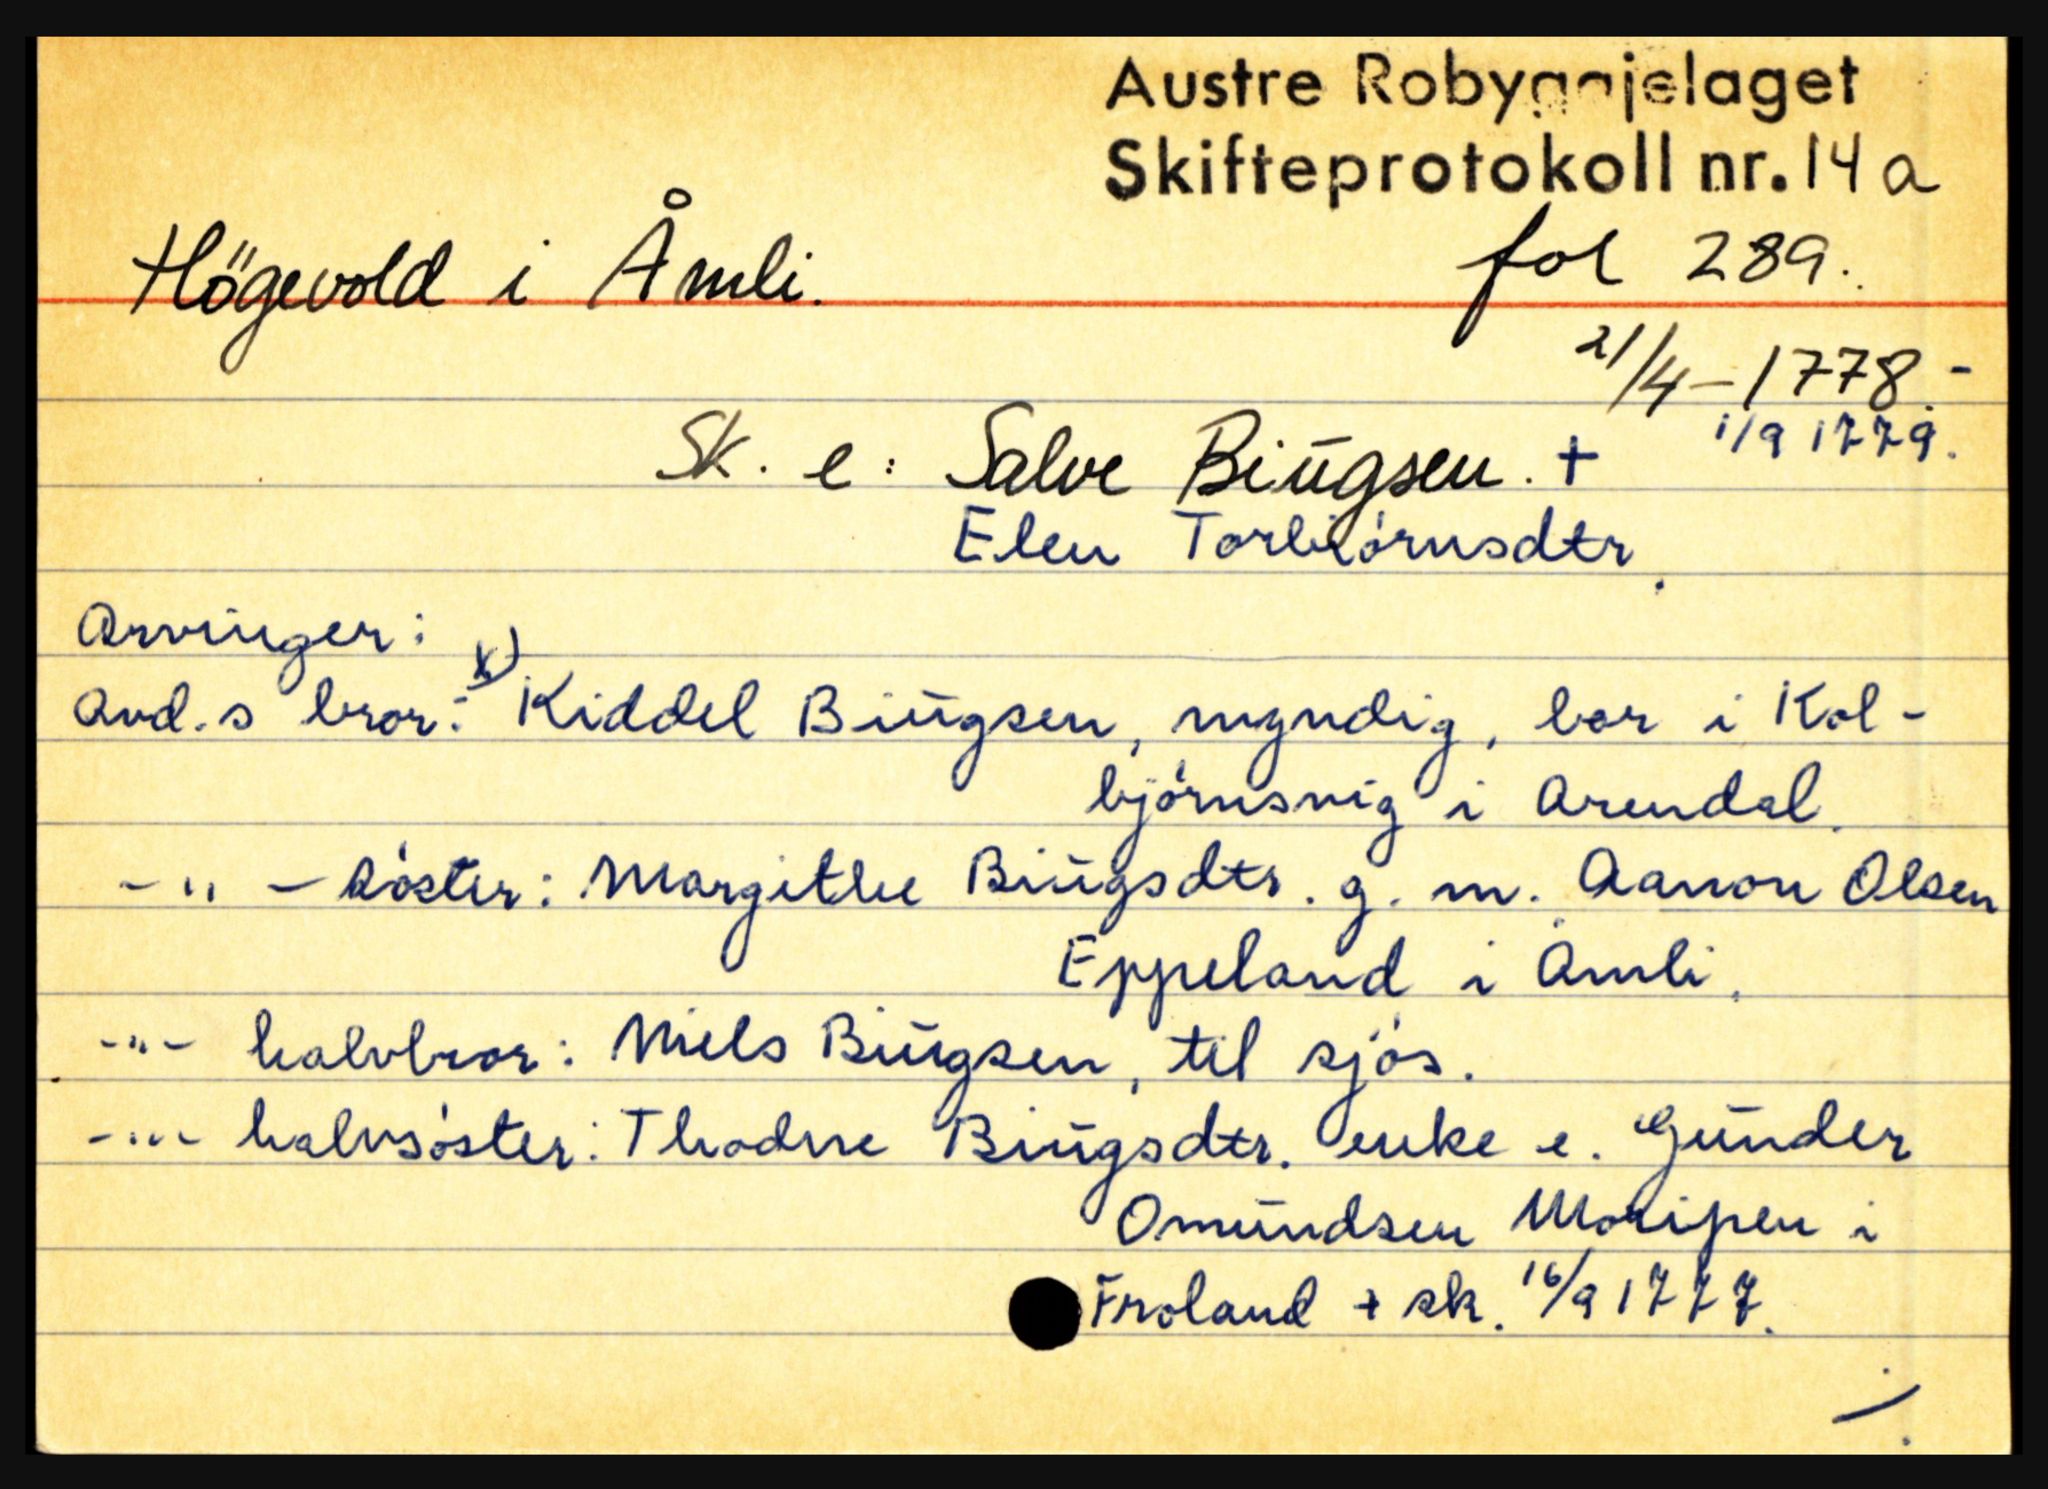 Austre Robyggjelaget
Skifteprotokoll nr. 14 a
Högevold i Åmli. fol 289.
21/4 - 1778. -
1/9 1779.
Sk. e: Salve Biūgsen. +
Elen Torbiörnsdtr.
Arvinger:
Avd.s bror: x) Kiddel Biūgsen, myndig, bor i Kol-
björnsvig i Arendal.
- " - söster: Margithe Biūgsdtr. g. m. Aanon Olsen
Eppeland i Åmli.
- " - halvbror: Niels Biūgsen, til sjös.
- " - halvsöster: Thodne Biūgsdtr. enke e. Gūnder
Omūndsen Moripen i
Froland + sk. 16/9 1777.